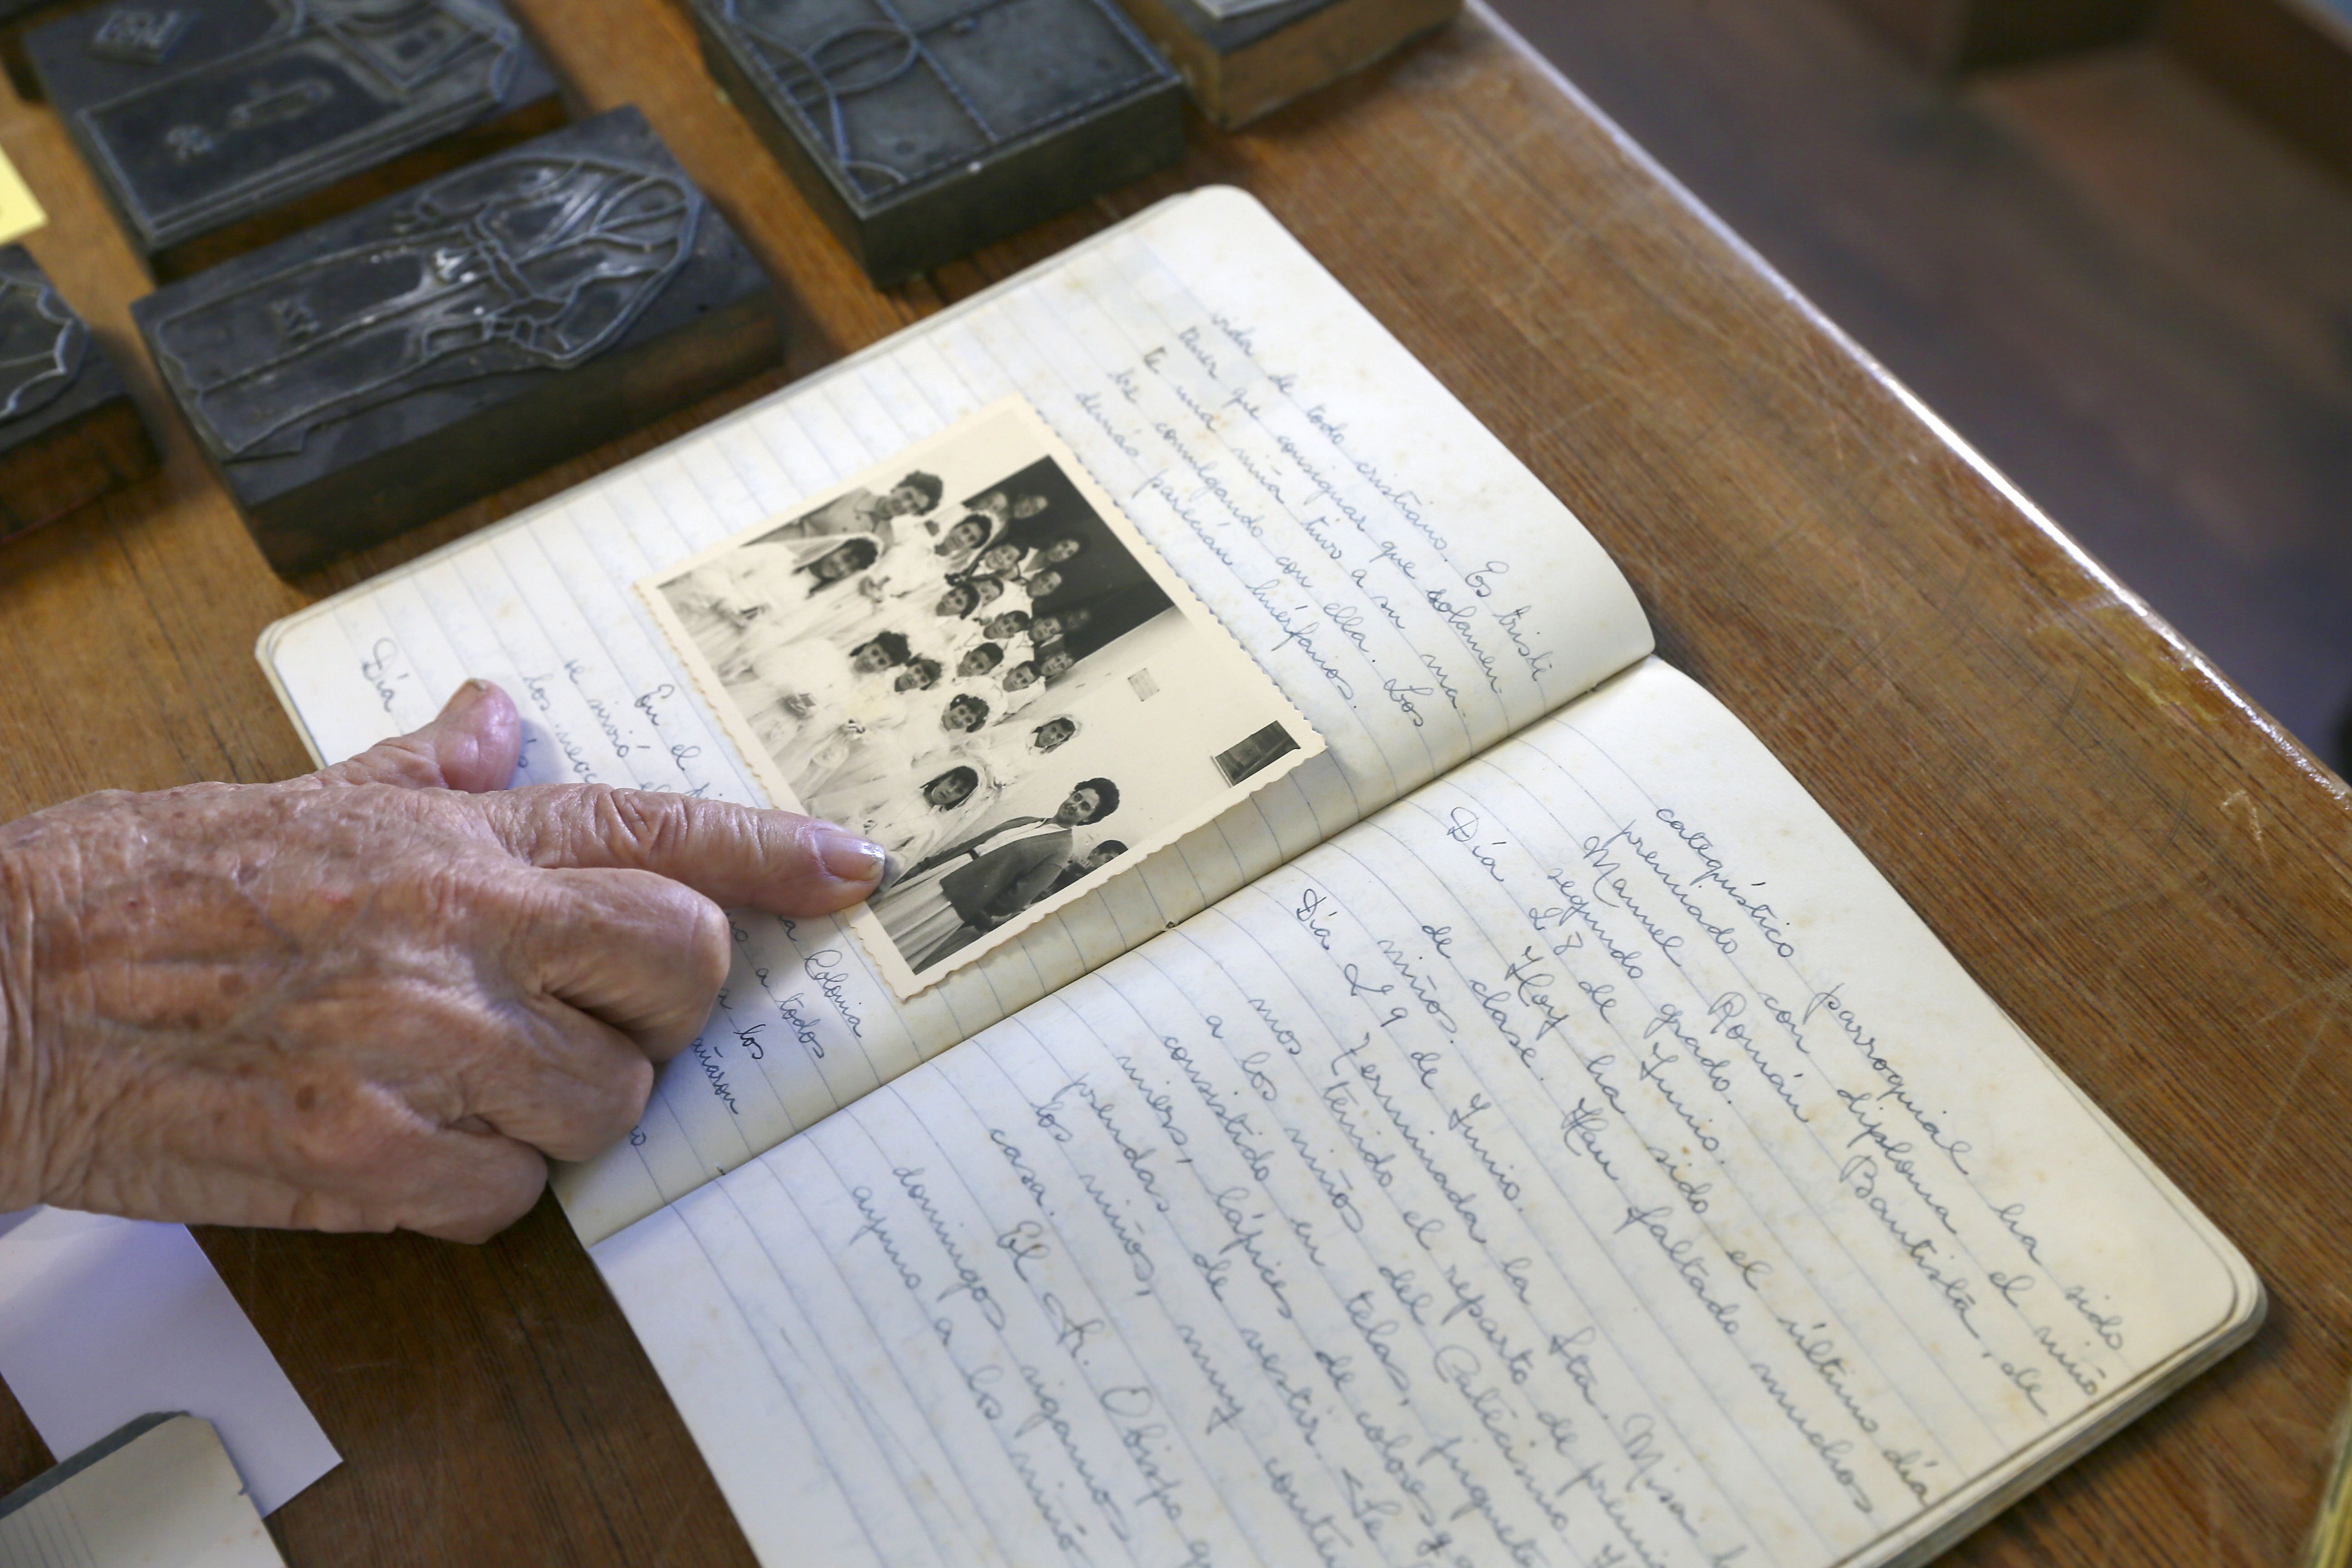 vida de todo cristiano. Es triste
tener que consignar que solamen-
te una niña tuvo a su ma-
dre comulgando con ella. Los
demás parecían huérfanos.
Día
En el
se sirvió el
los neoc
Colonia
a todos
a los
añaron
catequístico parroquial ha sido
premiado con diploma el niño
Manuel Román Bautista, de
segundo grado.
Día 27 de Junio.
Hoy ha sido el último día
de clase. Han faltado muchos
niños.
Día 29 de Junio.
Terminada la Sta. Misa h
mos tenido el reparto de premi
a los niños del Catecismo
consistido en telas, juguet
niers, lápices de colores y
prendas de vestir. Se
los niños, muy conten
casa.
El Sr. Obispo q
domingos sigamos
ayuno a los niño